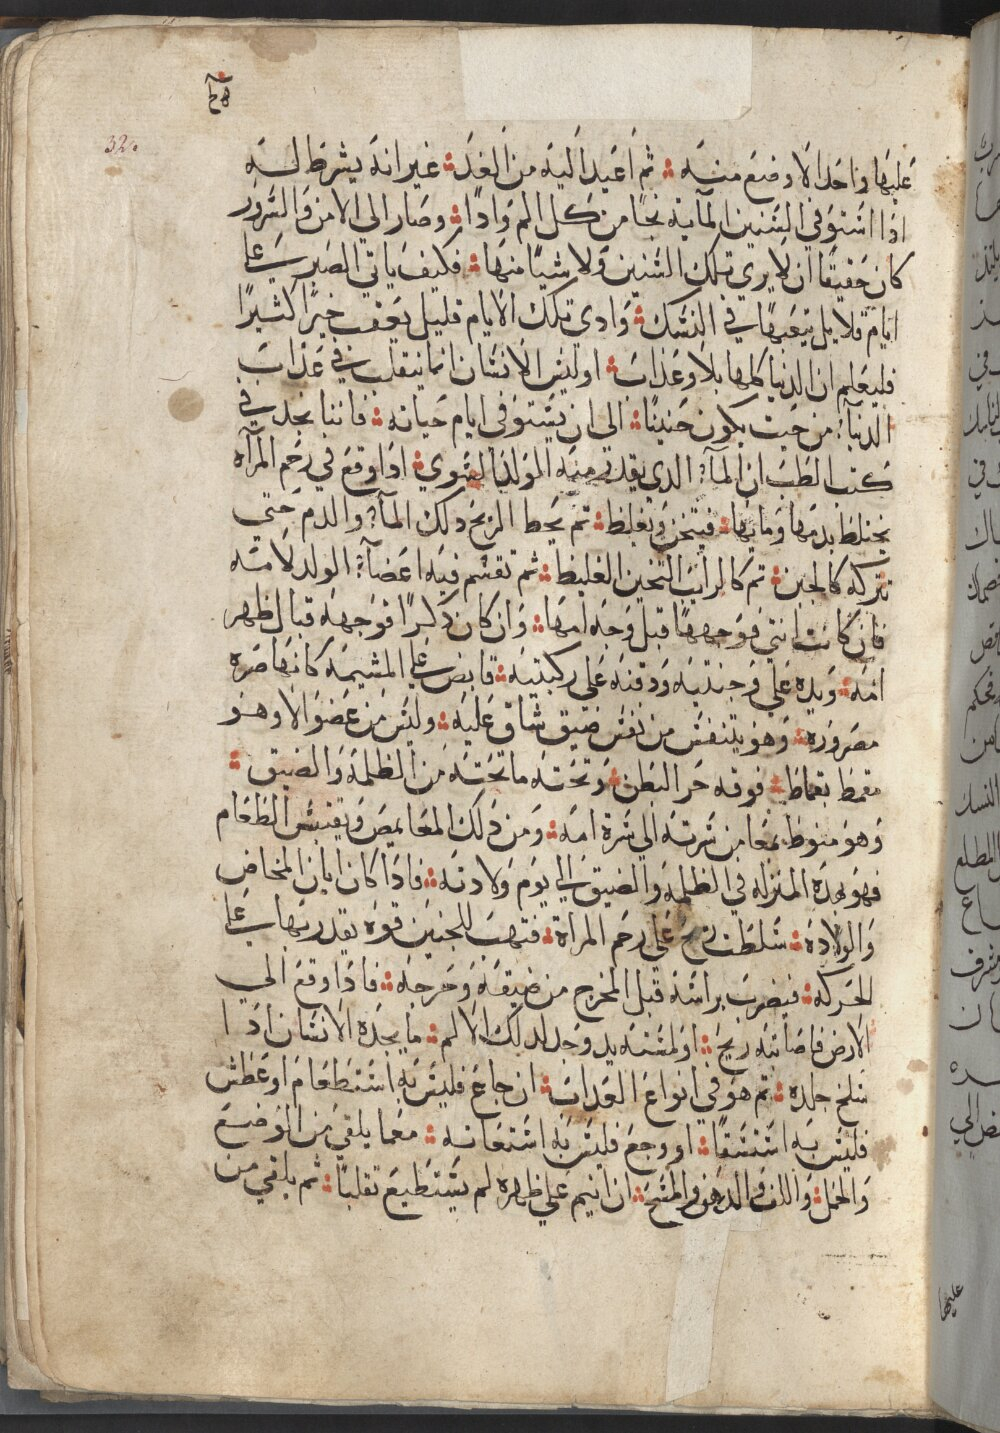 32.
عليها واحد الا وضع منه ⁘ ثم اعيد اليه من الغد ⁘ غير انه يشرط له
اذا استوفي السنين المآية نجا من كل الم واذا ⁘ وصار الي الامن والسرور
كان حقيقا ان لا يري تلك السنين ولا شيا منها ⁘ فكيف ياتي الصبر علي
ايام قلايل يتعبها في النسك ⁘ واذي تلك الايام قليل يعقب خيرا كثيرا
فليعلم ان الدنيا كلها بلا وعذاب ⁘ اوليس الانسان انما ينقلب في عذاب
الدنيا من حيث يكون جنينا ⁘ الي ان يستوفي ايام حياته ⁘ فاننا نجد في
كتب الطب ان المآ الذي يقدر منه المولد السوي ⁘ اذا وقع في رحم المرآه
يختلط بدمها ومايها ⁘ فيتخن ويغلظ ⁘ ثم يحط الريح ذلك المآ والدم حتي
تتركه كالجبن ⁘ ثم كالرايب التخين الغليظ ⁘ ثم تقسم فيه اعضآ الولد لامنه
فان كانت انتي فوجهها قبل وجه امها ⁘ وان كان ذكرا فوجهه قبال ظهر
امه ⁘ ويده علي وجنتيه ودقنه علي ركبتيه ⁘ قابض علي المشيمه كانها صره
مصروره ⁘ وهو يتنفس من نفس ضيق شاق عليه ⁘ وليس من عضو الا وهو
مقمط بقماط ⁘ فوقه حر البطن ⁘ وتحته ما تحته من الظلمه والضيق ⁘
وهو منوط بمعا من سرته الي سرة امه ⁘ ومن ذلك المعا يمص ويقتبس الطعام
فهو بهذه المنزله في الظلمه والضيق الي يوم ولادته ⁘ فاذا كان ابان المخاض
والولاده ⁘ سلطت ريح علي رحم المراة ⁘ فتهب للجنين قوة يقدر بها علي
الحركه ⁘ فيضرب براسه قبل المخرج من ضيقه وحرجه ⁘ فاذا وقع الي
الارض فاصابته ريح ⁘ او لمسته يد وجد لذلك الالم ⁘ ما يجده الانسان اذا
سلخ جلده ⁘ ثم هو في انواع العداب ⁘ ان جاع فليس به استطعام او عطش
فليس به استسقا ⁘ او وجع فليس به استعانه ⁘ معما يلقي من الوضع
والحمل ⁘ واللف والدهن والمسح ⁘ ان انيم علي ظهره لم يستطيع تقلبا ⁘ ثم يلقي من